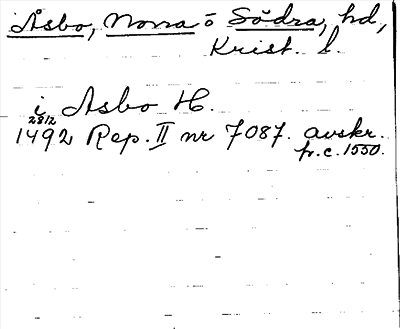 Åsbo, Norra o Södra, hd,
Krist. l.
i Asbo H.
28/2
1492 Rep. II nr 7087. avskr.
fr. c. 1550.